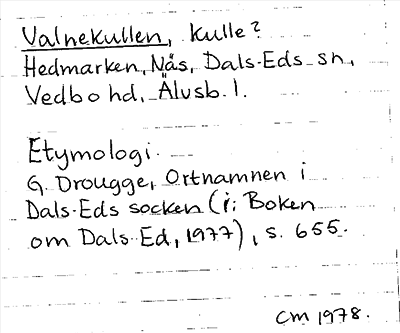 Valnekullen, kulle?
Hedmarken, Nås, Dals-Eds sn,
Vedbo hd, Älvsb. l.
Etymologi.
G. Drougge, Ortnamnen i
Dals-Eds socken (i: Boken
om Dals-Ed, 1977), s. 655.
CM 1978.